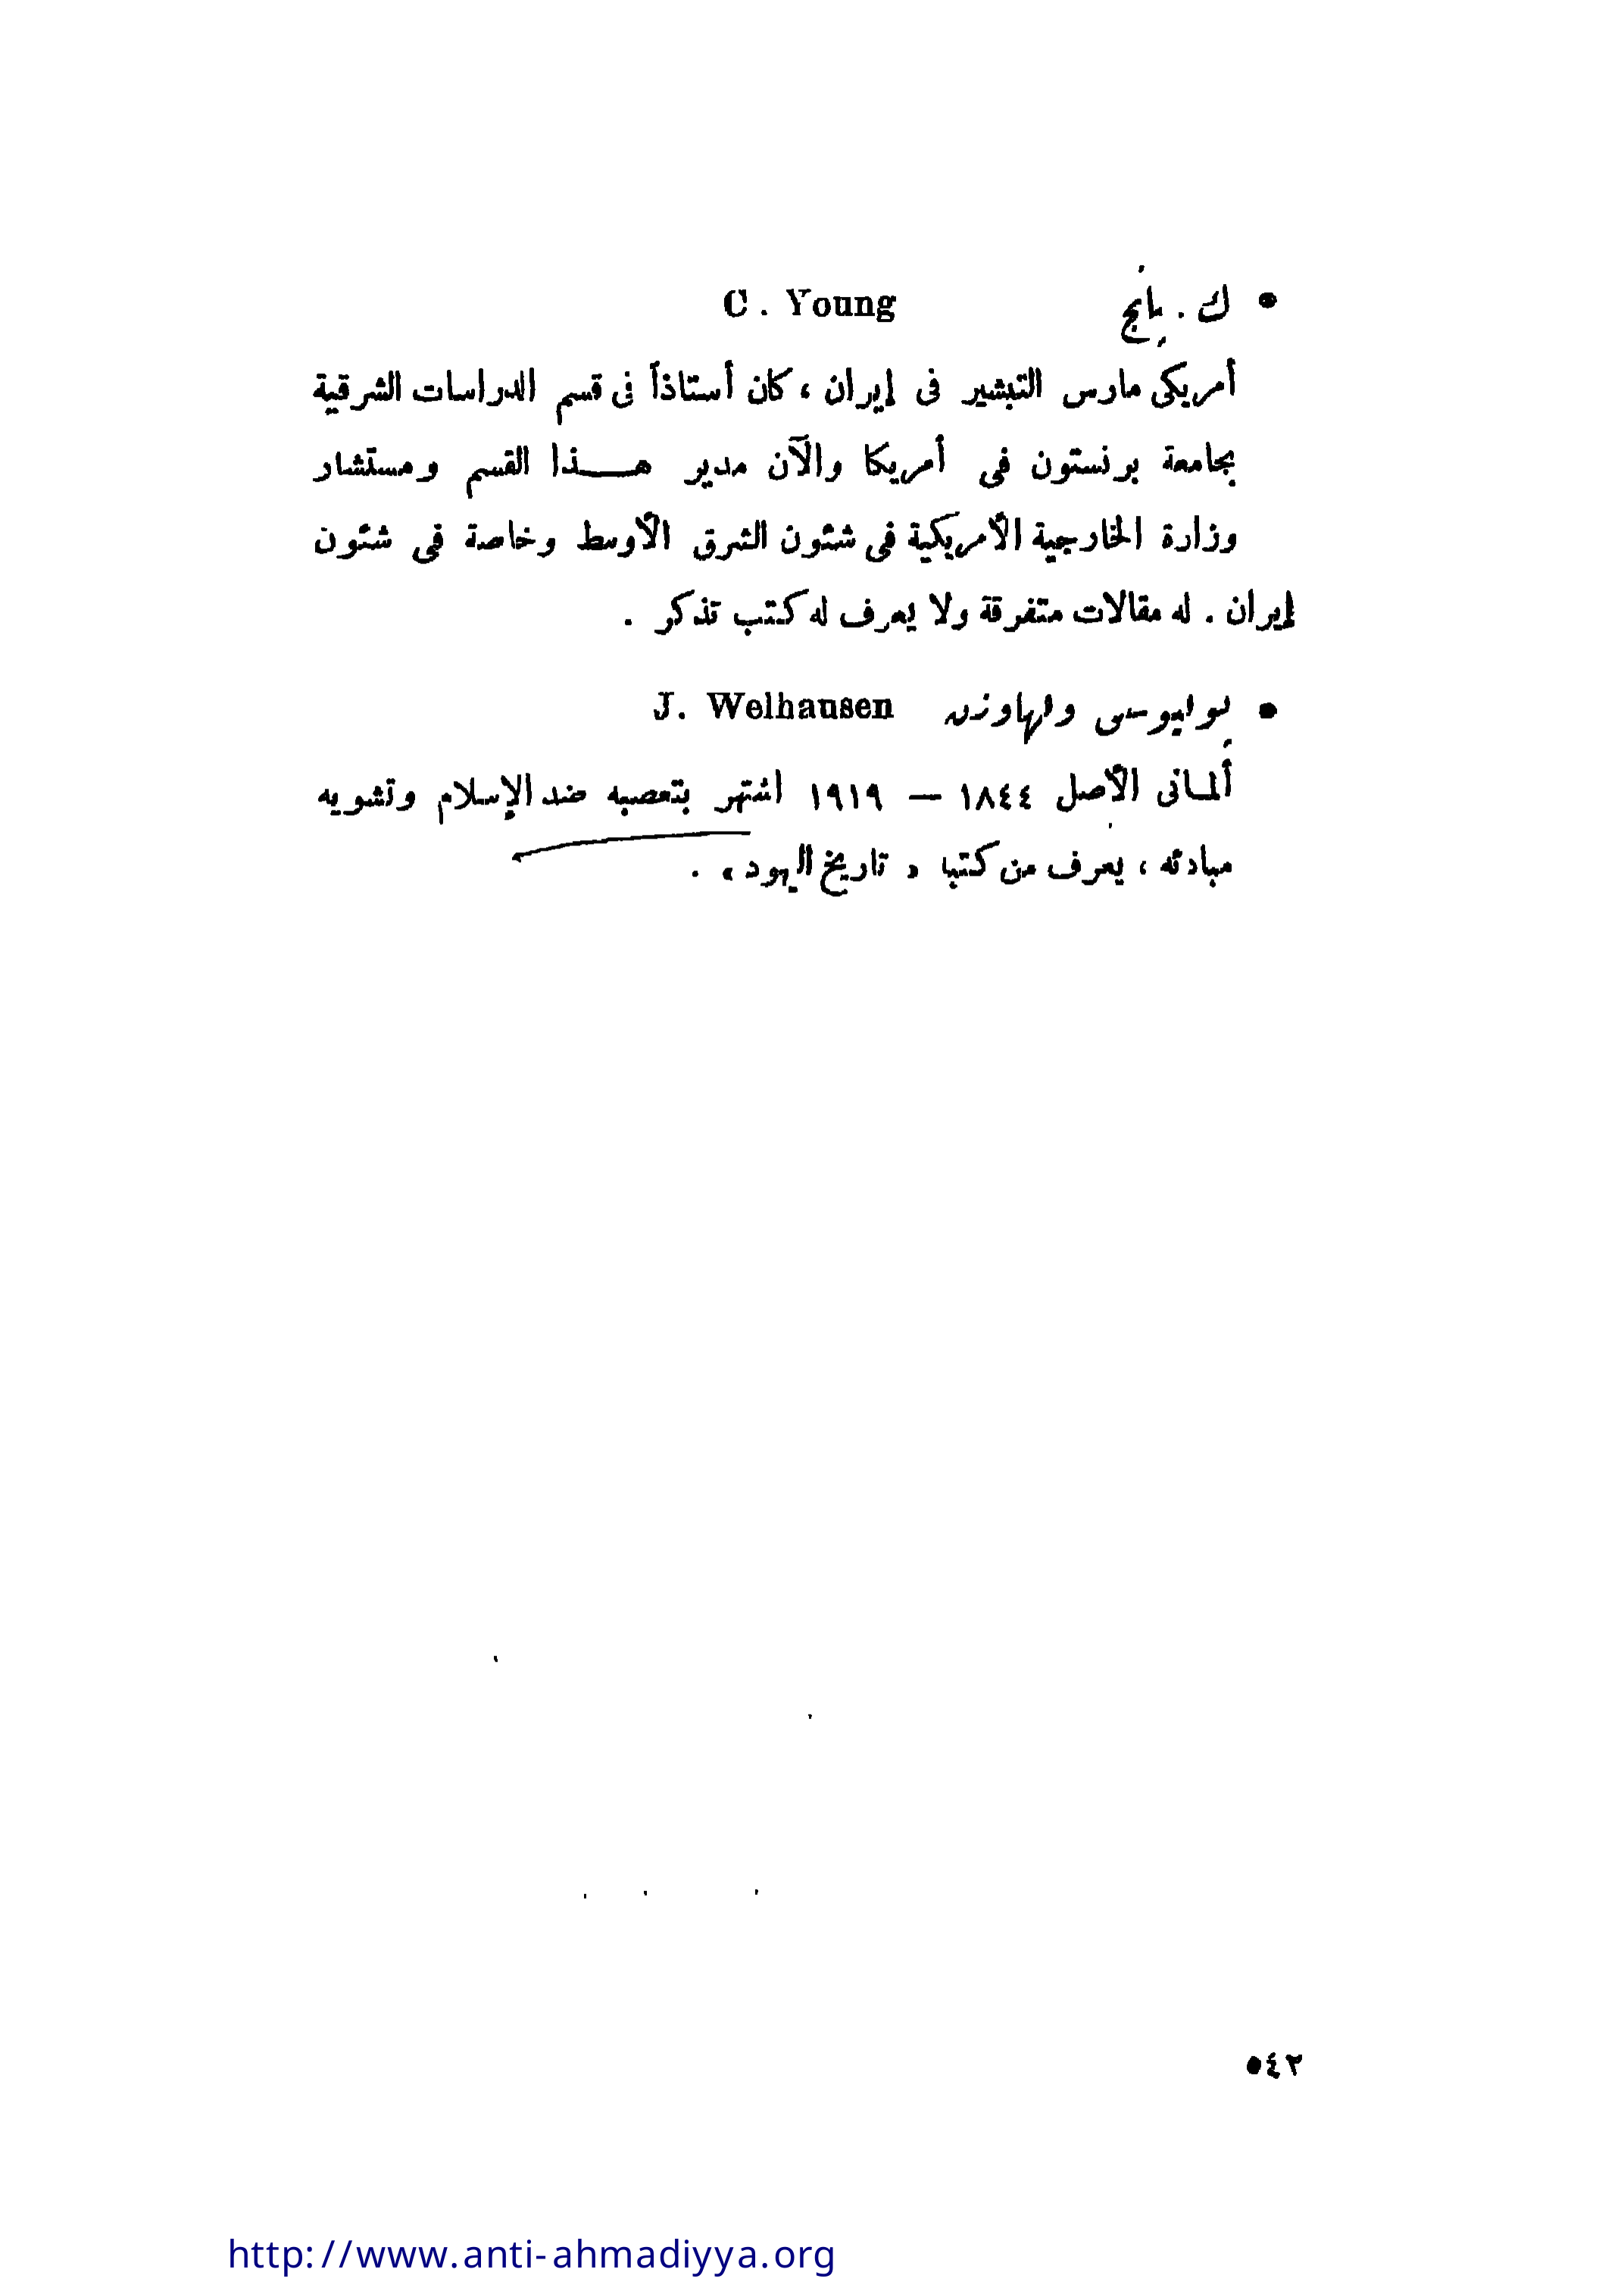 • ك . يانج C . Young
أمريكى مارس التبشير فى إيران ، كان أستاذاً فى قسم الدراسات الشرقية
بجامعة برنستون فى أمريكا والآن مدير هــــذا القسم ومستشار
وزارة الخارجية الأمريكية فى شئون الشرق الأوسط وخاصة فى شئون
إيران . له مقالات متفرقة ولا يعرف له كتب تذكر .
• يوليوس ولهاوزن J. Welhausen
ألمانى الأصل ١٨٤٤ — ١٩١٩ اشتهر بتعصبه ضد الإسلام وتشويه
مبادئه ، يعرف من كتبا « تاريخ اليهود » .
٥٤٢
http://www.anti-ahmadiyya.org